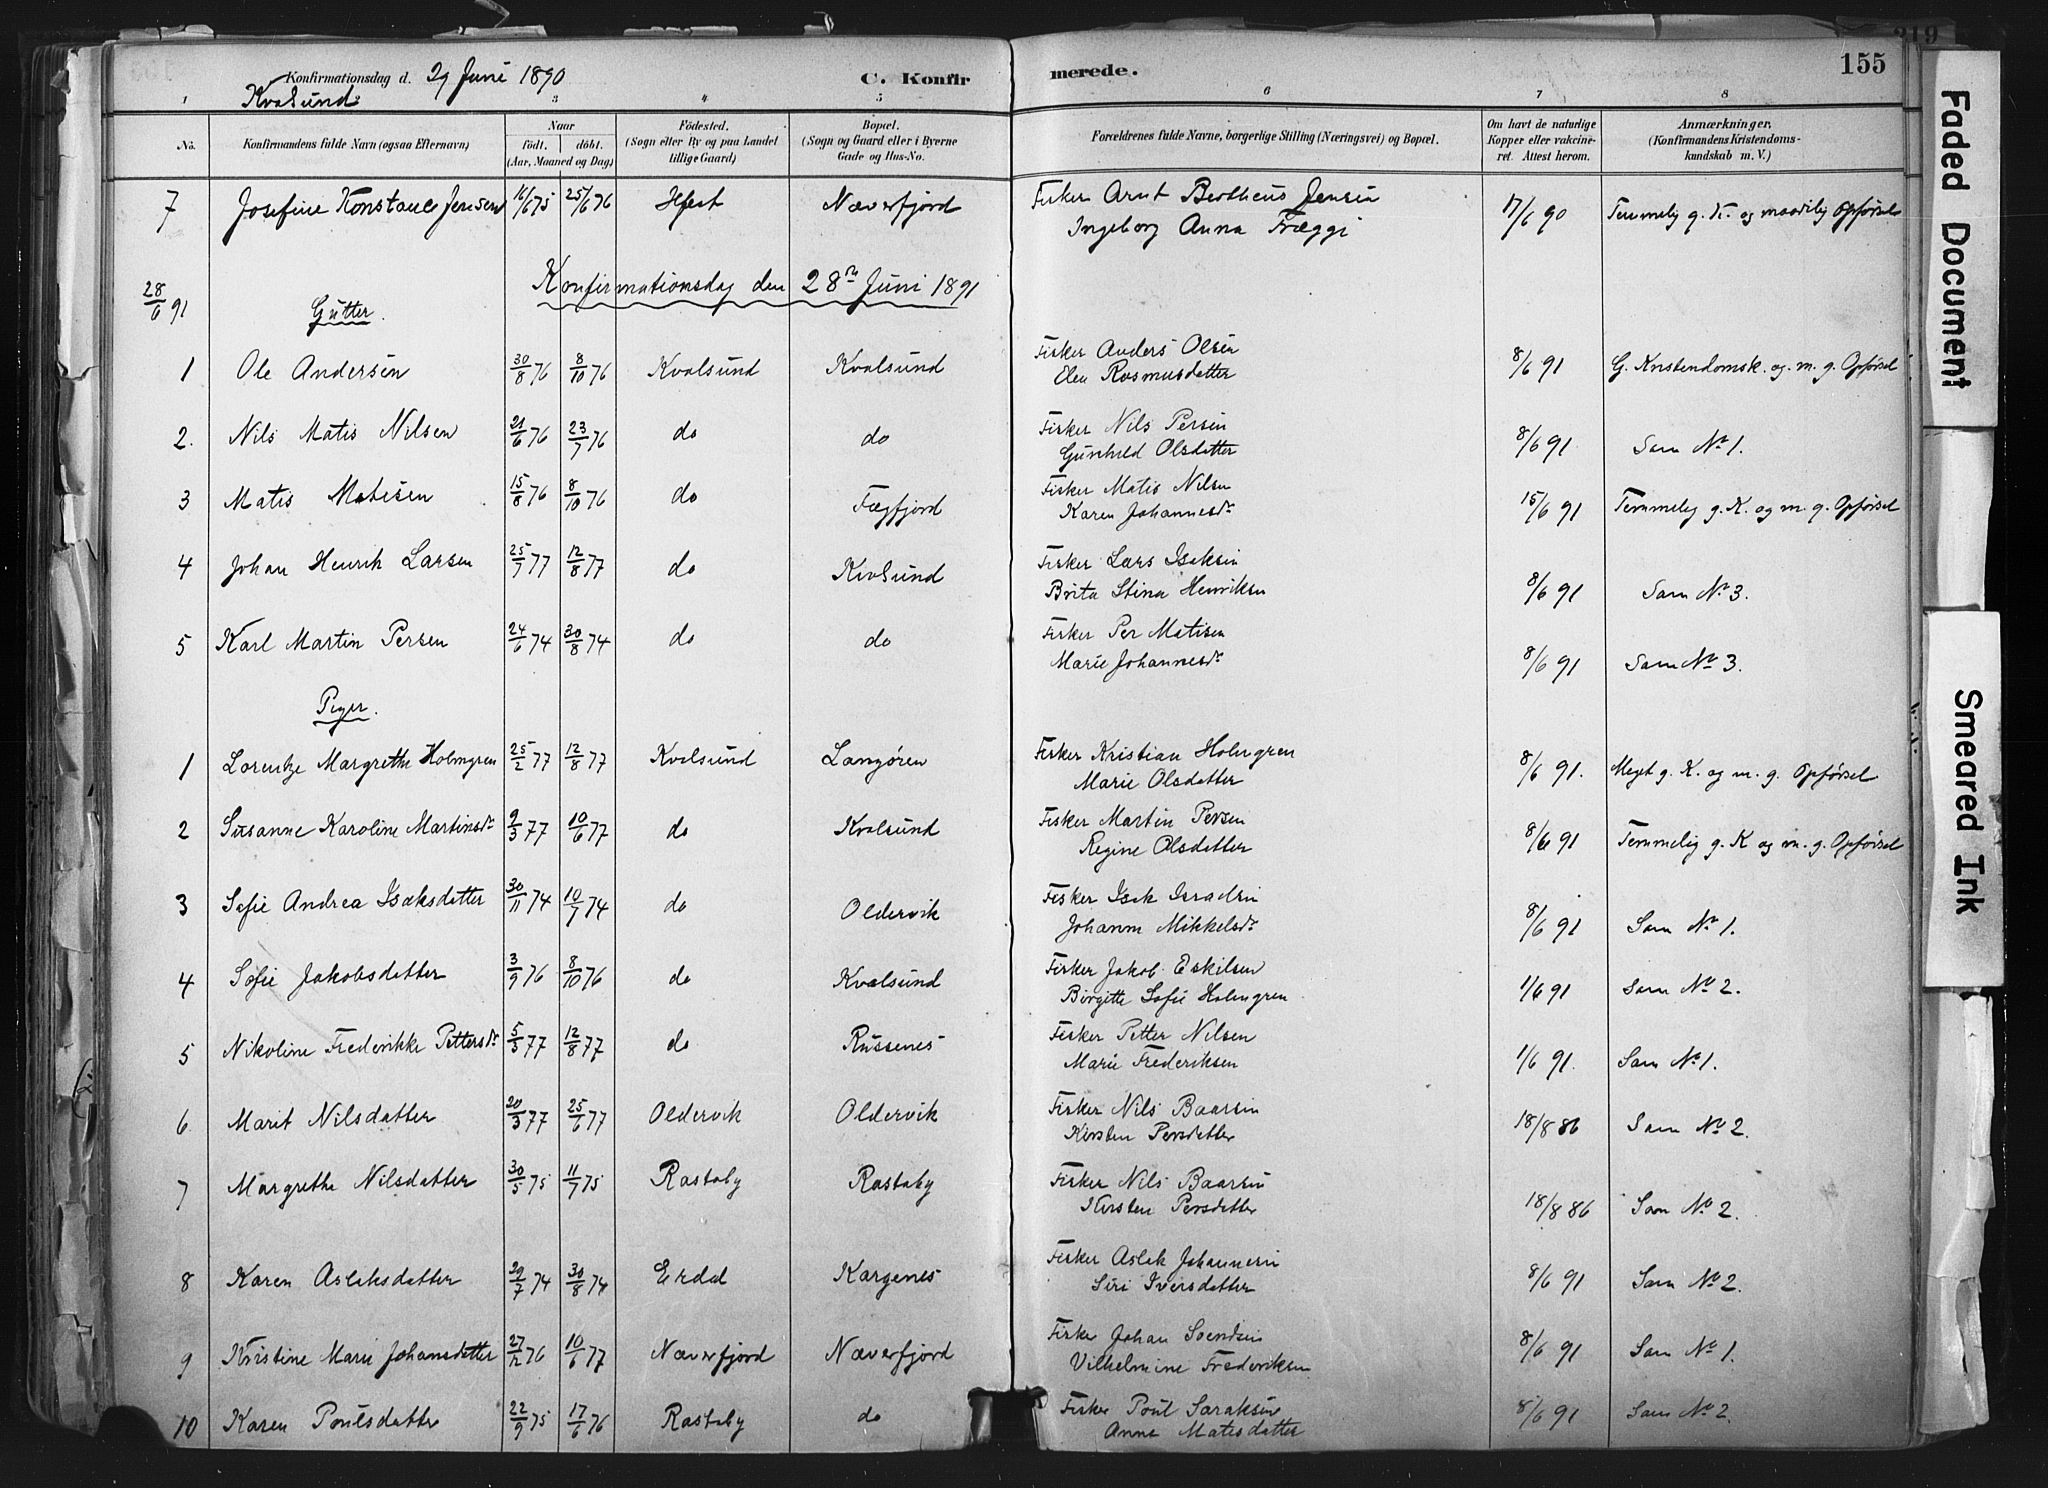 155
Konfirmationsdag d. 29 Juni 1890 C. Konfirmerede.
Kvalsund
1 3 4 5 6 7 8
No. Konfirmandens fulde Navn (ogsaa Efternavn) Naar født. døbt. (Aar, Maaned og Dag) Fødested. (Sogn eller By og paa Landet tillige Gaard) Bopæl. (Sogn og Gaard eller i Byerne Gade og Hus-No. Forældrenes fulde Navne, borgerlige Stilling (Næringsvei) og Bopæl. Om havt de naturlige Kopper eller vakcineret. Attest herom. Anmærkninger, (Konfirmandens Kristendomskundskab m. V.)
7 Josefine Konstance Jensen 16/6 75 25/6 76 Næverfjord Fisker Arnt Bertheus Jensen 17/6 90 Temmelig g. K. og maadelig Opførsel
Ingeborg Anna Fræggi
28/6 91 Konfirmationsdag den 28de Juni 1891
Gutter.
1 Ole Andersen 30/8 76 8/10 76 Kvalsund Kvalsund Fisker Anders Olsen 8/6 91 G. Kristendomsk. og m. g. Opførsel
Elen Rasmusdatter
2. Nils Matis Nilsen 21/6 76 23/7 76 do do Fisker Nils Persen 8/6 91. Som No 1.
Gunhild Olsdatter
3 Matis Matisen 15/8 76 8/10 76 do Fægfjord Fisker Matis Nilsen 15/6 91 Temmelig g. K. og m. g. Opførsel
Karen Johannesdr
4 Johan Henrik Larsen 25/7 77 12/8 77 do Kvalsund Fisker Lars Isaksen 8/6 91 Som No 3.
Brita Stina Henriksen
5 Karl Martin Persen 24/6 74 30/8 74 do do Fisker Per Matisen 8/6 91 Som No 3.
Marie Johannesdr
Piger.
1 Lorentze Margrethe Holmgren 25/2 77 12/8 77 Kvalsund Langøren Fisker Kristian Holmgren 8/6 91. Meget g. K. og m. g. Opførsel
Marie Olsdatter
2 Susanne Karoline Martinsdr 9/3 77 10/6 77 do Kvalsund Fisker Martin Persen 8/6 91 Temmelig g. K og m. g. Opførsel
Regine Olsdatter
3 Sofie Andrea Isaksdatter 30/11 74 10/7 74 do Oldervik Fisker Isak Israelsen 8/6 91 Som No 1.
Johanne Mikkelsdr
4 Sofie Jakobsdatter 3/9 76 8/10 76 do Kvalsund Fisker Jakob Eskilsen 1/6 91 Som No 2.
Birgitte Sofie Holmgren
5 Nikoline Frederikke Pettersdr 5/3 77 12/8 77 do Russenes Fisker Petter Nilsen 1/6 91. Som No 1.
Marie Frederiksen
6. Marit Nilsdatter 20/3 77 25/6 77 Oldervik Oldervik Fisker Nils Baarsen 18/8 86 Som No 2.
Kirsten Persdatter
7 Margrethe Nilsdatter 30/5 75 11/7 75 Rastaby Rastaby Fisker Nils Baarsen 18/8 86 Som No 2.
Kirsten Persdatter
8 Karen Aslaksdatter 29/7 74 30/8 74 Erdal Kargenes Fisker Aslak Johannesen 8/6 91 Som No 2.
Siri Iversdatter
9 Kristine Marie Johansdatter 27/12 76 10/6 77 Næverfjord Næverfjord Fisker Johan Svendsen 8/6 91 Som No 1.
Vilhelmine Frederiksen
10 Karen Poulsdatter 22/9 75 17/6 76 Rastaby do Fisker Poul Saraksen 8/6 91 Som No 2.
Anne Matisdatter
Faded Document
Smeared Ink